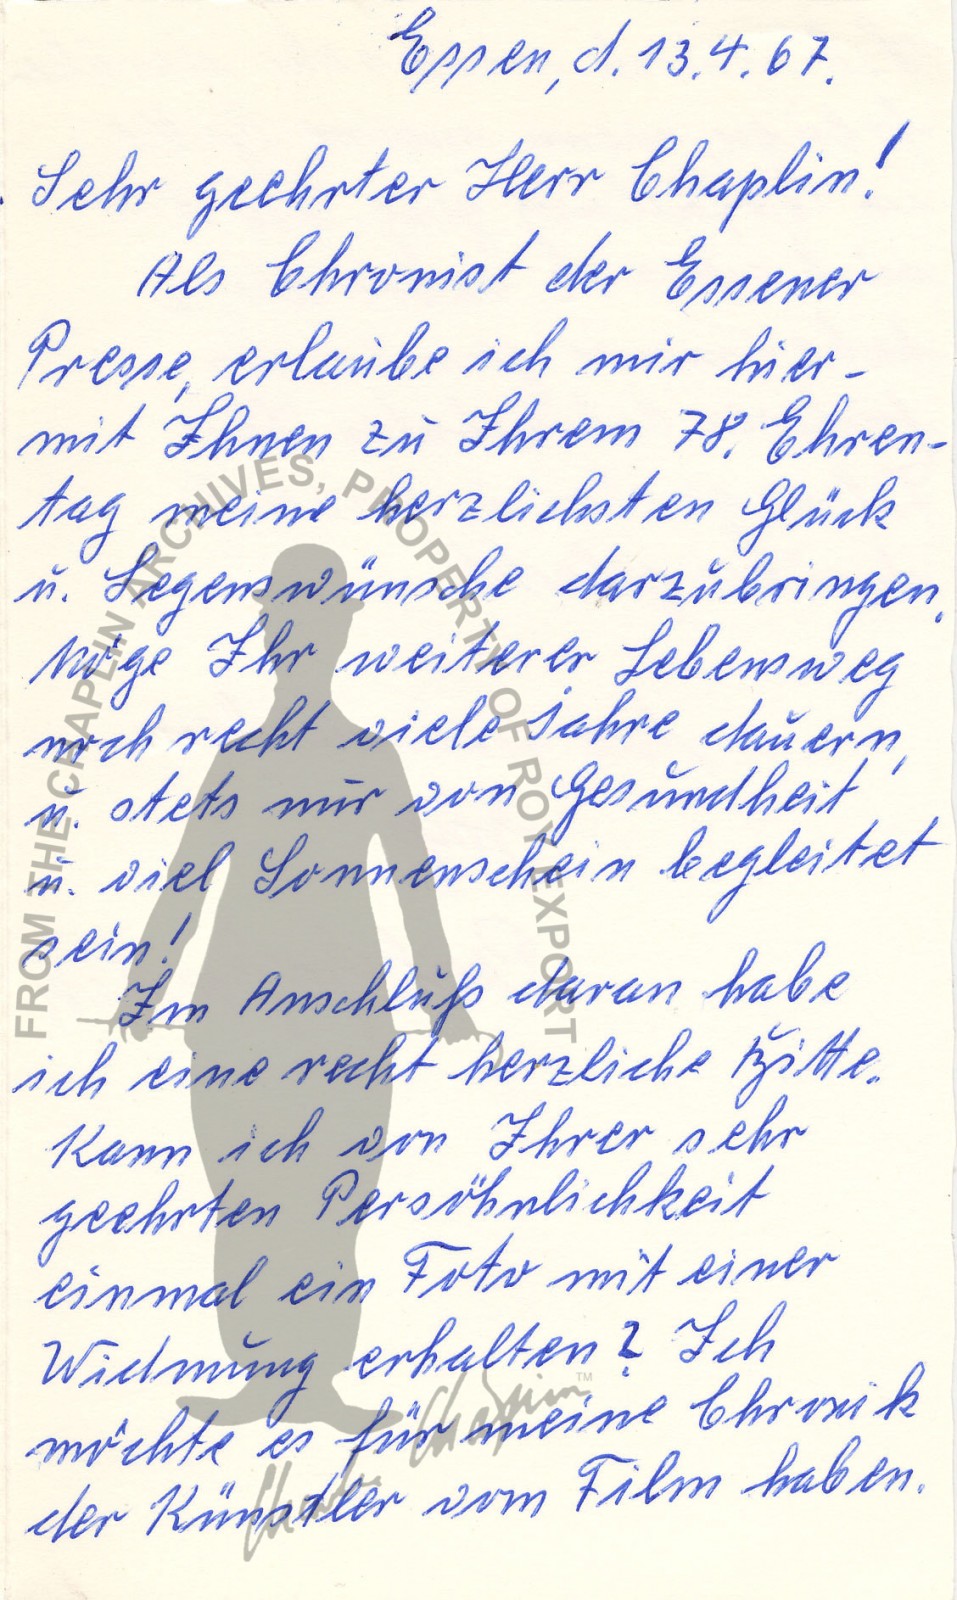 Essen, d. 13.4.67.
Sehr geehrter Herr Chaplin!
Als Chronist der Essener
Presse, erlaube ich mir hier-
mit Ihnen zu Ihrem 78. Ehren-
tag meine herzlichsten Glück
u. Segenswünsche darzubringen.
Möge Ihr weiterer Lebensweg
noch recht viele Jahre dauern,
u. stets nur von Gesundheit
u. viel Sonnenschein begleitet
sein!
Im Anschluß daran habe
ich eine recht herzliche Bitte.
Kann ich von Ihrer sehr
geehrten Persöhnlichkeit
einmal ein Foto mit einer
Widmung erhalten? Ich
möchte es für meine Chronik
der Künstler vom Film haben.
FROM THE CHAPLIN ARCHIVES, PROPERTY OF ROY EXPORT
Charlie Chaplin™